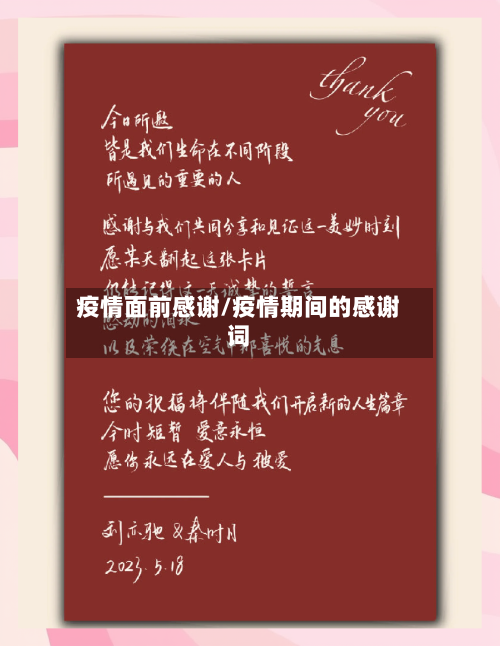 thank
you
今日所邀
皆是我们生命在不同阶段
所遇见的重要的人
感谢与我们共同分享和见证这一美妙时刻
愿某天翻起这张卡片
仍能记得这一天诚挚的誓言
疫情面前感谢/疫情期间的感谢
词
感动的泪眼
以及萦绕在空气中那喜悦的气息
您的祝福将伴随我们开启新的人生篇章
今时短暂 爱意永恒
愿你永远在爱人与被爱
刘亦驰 & 秦时月
2023.5.18